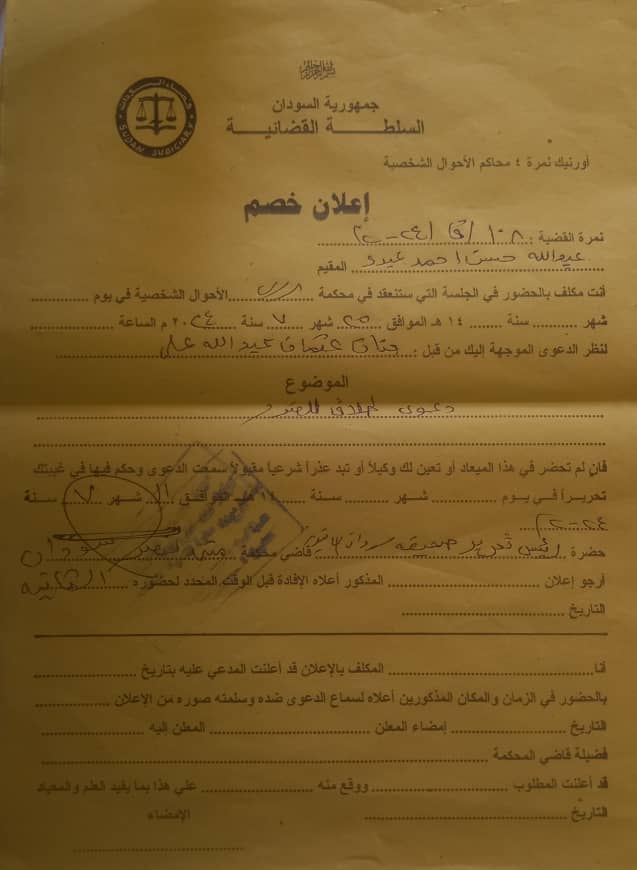 بسم الله الرحمن الرحيم
جمهورية السودان
السلطة القضائية
SUDAN JUDICIARY
أورنيك نمرة ٤ محاكم الأحوال الشخصية
إعلان خصم
نمرة القضية : ١٠٨ / ق / ٢٠٢٤
عبدالله حسن احمد عبدو المقيم
أنت مكلف بالحضور في الجلسة التي ستنعقد في محكمة الأحوال الشخصية في يوم
شهر سنة ١٤ هـ الموافق ٢٥ شهر ٧ سنة ٢٠٢٤ م الساعة
لنظر الدعوى الموجهة إليك من قبل : حنان عثمان عبدالله علي
الموضوع
دعوى طلاق للضرر
فان لم تحضر في هذا الميعاد أو تعين لك وكيلاً أو تبد عذراً شرعياً مقبولاً سمعت الدعوى وحكم فيها في غيبتك
تحريراً في يوم شهر سنة ١٤ هـ الموافق شهر ٧ سنة
٢٠٢٤
حضرة / رئيس تحرير صحيفة قاضي محكمة
أرجو إعلان المذكور أعلاه الإفادة قبل الوقت المحدد لحضوره
التاريخ
أنا المكلف بالإعلان قد أعلنت المدعي عليه بتاريخ
بالحضور في الزمان والمكان المذكورين أعلاه لسماع الدعوى ضده وسلمته صوره من الإعلان
التاريخ إمضاء المعلن المعلن اليه
فضيلة قاضي المحكمة
قد أعلنت المطلوب ووقع منه علي هذا بما يفيد العلم والميعاد
التاريخ الإمضاء